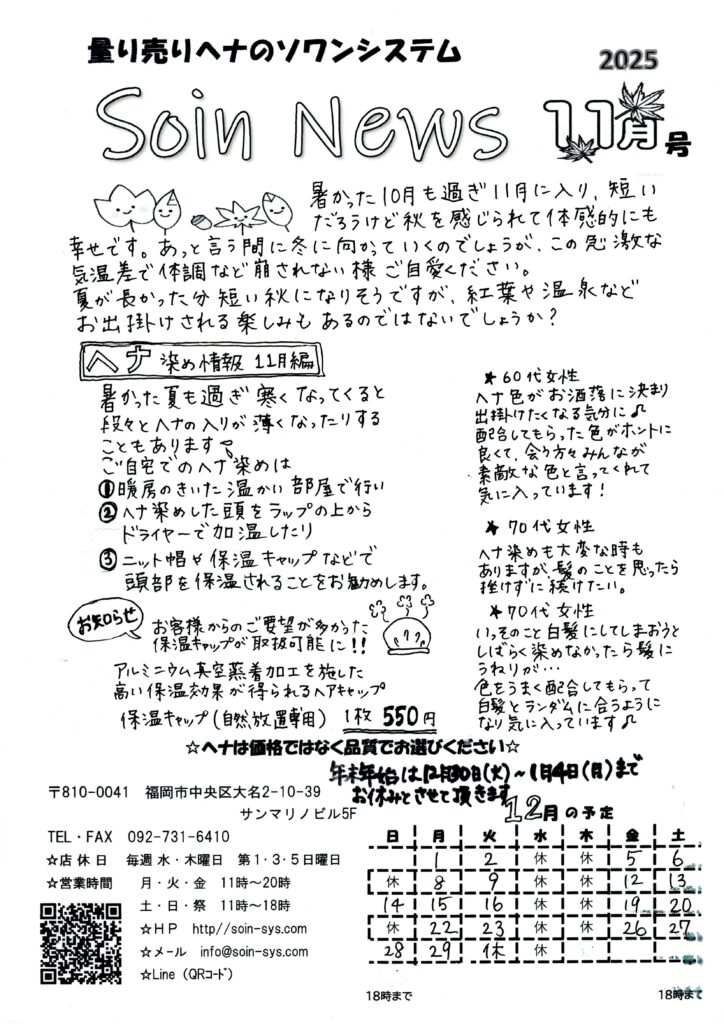 量り売りヘナのソワンシステム
2025
Soin News 11月号
暑かった10月も過ぎ11月に入り、短い
だろうけど秋を感じられて体感的にも
幸せです。あっと言う間に冬に向かっていくのでしょうが、この急激な
気温差で体調など崩されない様ご自愛ください。
夏が長かった分短い秋になりそうですが、紅葉や温泉など
お出掛けされる楽しみもあるのではないでしょうか?
ヘナ 染め情報 11月編
暑かった夏も過ぎ寒くなってくると
段々とヘナの入りが薄くなったりする
こともあります♪
ご自宅でのヘナ染めは
①暖房のきいた温かい部屋で行い
②ヘナ染めした頭をラップの上から
ドライヤーで加温したり
③ニット帽や保温キャップなどで
頭部を保温されることをお勧めします。
お知らせ
お客様からのご要望が多かった
保温キャップが取扱可能に!!
アルミニウム真空蒸着加工を施した
高い保温効果が得られるヘアキャップ
保温キャップ(自然放置専用) 1枚 550円
★60代女性
ヘナ色がお洒落に決まり
出掛けたくなる気分に♪
配合してもらった色がホントに
良くて、会う方々みんなが
素敵な色と言ってくれて
気に入っています!
★70代女性
ヘナ染めも大変な時も
ありますが、髪のことを思ったら
挫けずに続けたい。
★70代女性
いっそのこと白髪にしてしまおうと
しばらく染めなかったら髪に
うねりが…
色をうまく配合してもらって
白髪とランダムに合うように
なり気に入っています♪
☆ヘナは価格ではなく品質でお選びください☆
年末年始は12月30日(火)~1月4日(月)まで
お休みとさせて頂きます
〒810-0041 福岡市中央区大名2-10-39
サンマリノビル5F
TEL・FAX 092-731-6410
☆店休日 毎週水・木曜日 第1・3・5日曜日
☆営業時間 月・火・金 11時~20時
土・日・祭 11時~18時
☆HP http//soin-sys.com
☆メール info@soin-sys.com
☆Line (QRコード)
12月の予定
日 月 火 水 木 金 土
1 2 休 休 5 6
休 8 9 休 休 12 13
14 15 16 休 休 19 20
休 22 23 休 休 26 27
28 29 休 休 休
18時まで 18時まで